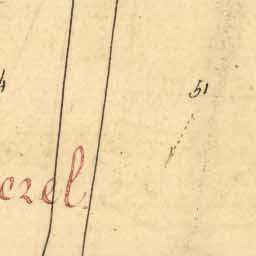 51
czel.